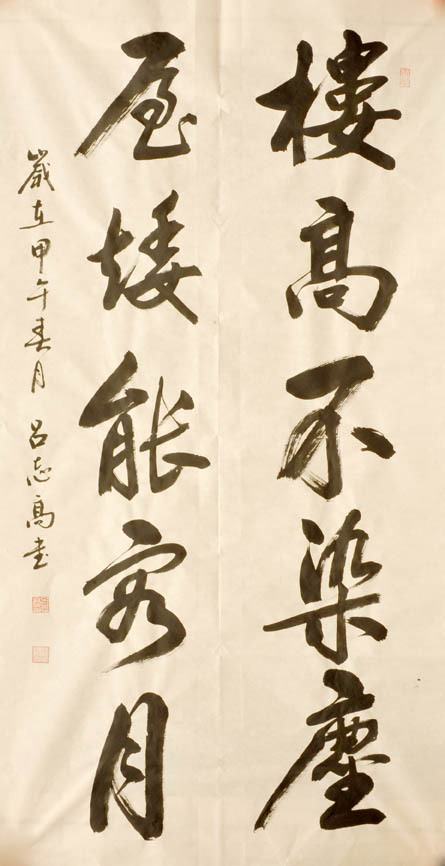 樓高不染塵
屋矮能容月
歲在甲午春月 呂志高書